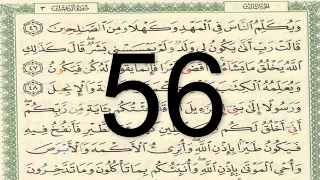 وَيُكَلِّمُ ٱلنَّاسَ فِي ٱلْمَهْدِ وَكَهْلًا وَمِنَ ٱلصَّٰلِحِينَ ٤٦
قَالَتْ رَبِّ أَنَّىٰ يَكُونُ لِي وَلَدٌ وَلَمْ يَمْسَسْنِي بَشَرٌ قَالَ كَذَٰلِكِ
ٱللَّهُ يَخْلُقُ مَا يَشَآءُ فَإِنَّمَا يَقُولُ لَهُۥ كُن فَيَكُونُ
وَيُعَلِّمُهُ ٱلْكِتَٰبَ وَٱلْإِنجِيلَ ٤٨
وَرَسُولًا إِلَىٰ بَنِيٓ بِـَٔايَةٍ مِّن رَّبِّكُمْ
أَنِّيٓ أَخْلُقُ لَكُم ٱلطَّيْرِ فَأَنفُخُ فِيهِ
فَيَكُونُ طَيْرًۢا بِإِذْنِ ٱللَّهِ وَأُبْرِئُ ٱلْأَكْمَهَ وَٱلْأَبْرَصَ
وَأُحْيِ ٱلْمَوْتَىٰ بِإِذْنِ ٱللَّهِ وَأُنَبِّئُكُم بِمَا تَأْكُلُونَ وَمَا تَدَّخِرُونَ
56